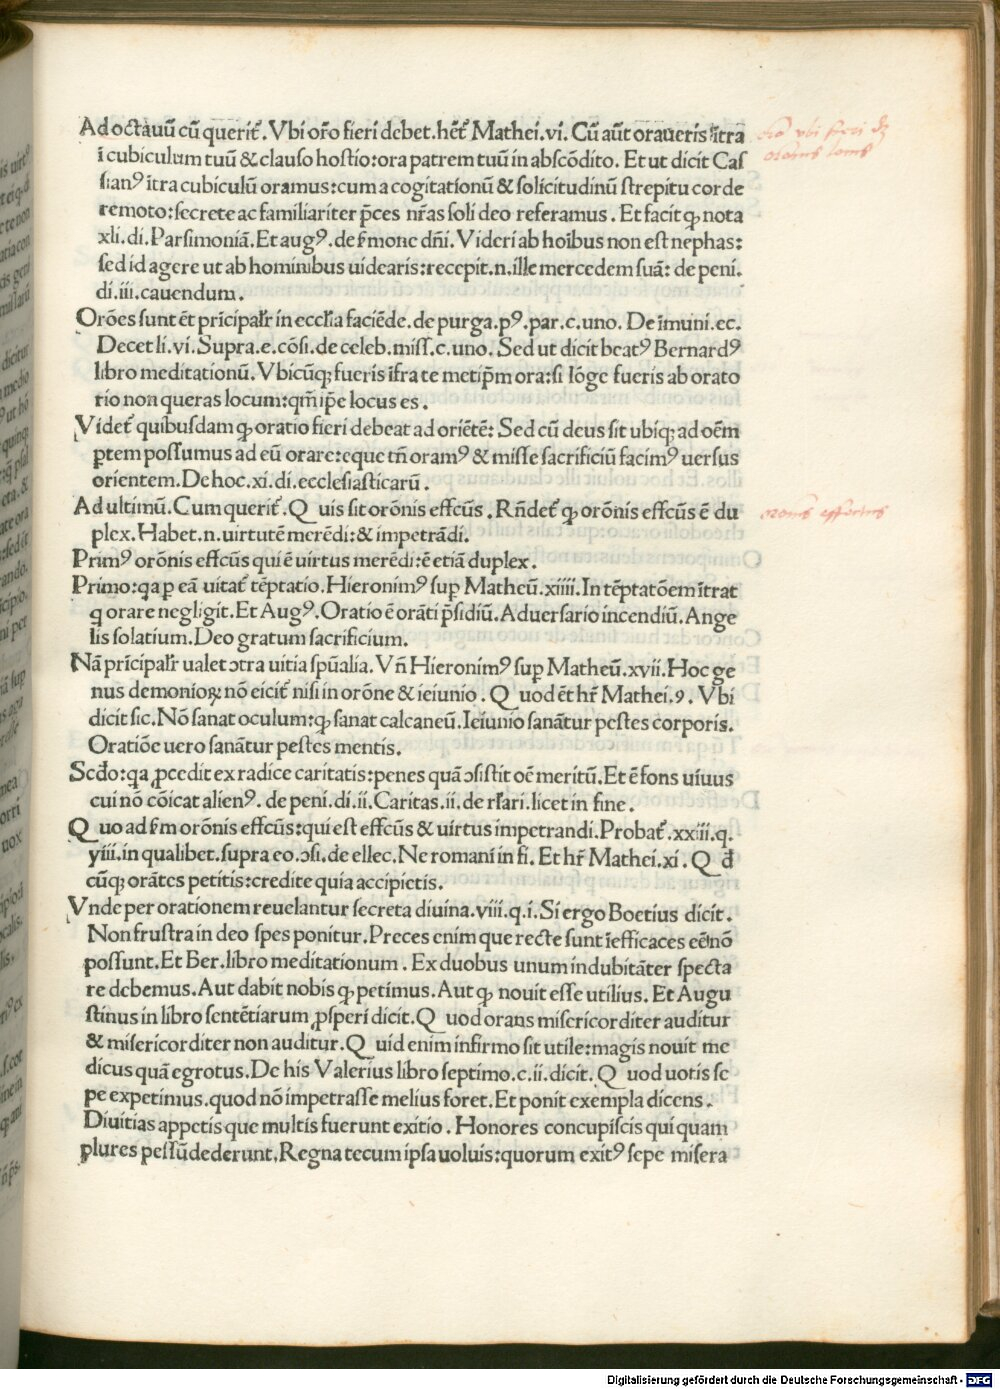 Ad octauũ cũ querit᷑. Vbi or̃o fieri debet. hẽt᷑ Mathei. vi. Cũ aũt oraueris ĩtra
ĩ cubiculum tuũ & clauſo hoſtio: ora patrem tuũ in abſcõdito. Et ut dicit Caſ
ſianꝰ ĩtra cubiculũ oramus: cum a cogitationũ & ſolicitudinũ ſtrepitu corde
remoto: ſecrete ac familiariter p̃ces nr̃as ſoli deo referamus. Et facit ꝙ nota
xli. di. Parſimoniã. Et augꝰ. de ſ̃mone dñi. Videri ab hoĩbus non eſt nephas:
ſed id agere ut ab hominibus uidearis: recepit. n. ille mercedem ſuã: de peni.
di. iii. cauendum.
Orões ſunt ẽt prĩcipalr̃ in eccľia faciẽde. de purga. pꝰ. par. c. uno. De ĩmuni. ec.
Decet li. vi. Supra. e. cõſi. de celeb. miſſ. c. uno. Sed ut dicit beatꝰ Bernardꝰ
libro meditationũ. Vbicũqꝫ fueris ĩfra te metip̃m ora: ſi lõge fueris ab orato
rio non queras locum: qm̃ ip̃e locus es.
Videt᷑ quibuſdam ꝙ oratio fieri debeat ad oriẽtẽ: Sed cũ deus ſit ubiqꝫ ad oẽm
ꝑtem poſſumus ad eũ orare: eque tñ oramꝰ & miſſe ſacrificiũ facimꝰ uerſus
orientem. De hoc. xi. di. eccleſiaſticarũ.
Ad ultimũ. Cum querit᷑. Q uis ſit orõnis effcũs. Rñdet᷑ ꝙ orõnis effcũs ẽ du
plex. Habet. n. uirtutẽ merẽdi: & impetrãdi.
Primꝰ orõnis effcũs qui ẽ uirtus merẽdi: ẽ etiã duplex.
Primo: qa ꝑ eã uitat᷑ tẽptatio. Hieronimꝰ ſuꝑ Matheũ. xiiii. In tẽptatõem ĩtrat
q orare negligit. Et Augꝰ. Oratio ẽ orãti p̃ſidiũ. Aduerſario incendiũ. Ange
lis ſolatium. Deo gratum ſacrificium.
Nã prĩcipalr̃ ualet ꝯtra uitia ſpũalia. Vñ Hieronimꝰ ſuꝑ Matheũ. xvii. Hoc ge
nus demonioꝝ nõ eicit᷑ niſi in orõne & ieiunio. Q uod ẽt hr̃ Mathei. 9. Vbi
dicit ſic. Nõ ſanat oculum: ꝙ ſanat calcaneũ. Ieiunio ſanãtur peſtes corporis.
Oratiõe uero ſanãtur peſtes mentis.
Scđo: qa ꝓcedit ex radice caritatis: penes quã ꝯſiſtit oẽ meritũ. Et ẽ fons uiuus
cui nõ cõicat alienꝰ. de peni. di. ii. Caritas. ii. de rľari. licet in fine.
Q uo ad ſ̃m orõnis effcũs: qui eſt effcũs & uirtus impetrandi. Probat᷑. xxiii. q.
yiii. in qualibet. ſupra eo. ꝯſi. de ellec. Ne romani in fi. Et hr̃ Mathei. xi. Q đ
cũqꝫ orãtes petitis: credite quia accipietis.
Vnde per orationem reuelantur ſecreta diuina. viii. q. i. Si ergo Boetius dicit.
Non fruſtra in deo ſpes ponitur. Preces enim que recte ſunt ĩefficaces eẽ nõ
poſſunt. Et Ber. libro meditationum. Ex duobus unum indubitãter ſpecta
re debemus. Aut dabit nobis ꝙ petimus. Aut ꝙ nouit eſſe utilius. Et Augu
ſtinus in libro ſentẽtiarum ꝓſperi dicit. Q uod orans miſericorditer auditur
& miſericorditer non auditur. Q uid enim infirmo ſit utile: magis nouit me
dicus quã egrotus. De his Valerius libro ſeptimo. c. ii. dicit. Q uod uotis ſe
pe expetimus. quod nõ impetraſſe melius foret. Et ponit exempla dicens.
Diuitias appetis que multis fuerunt exitio. Honores concupiſcis qui quam
plures peſſũdederunt. Regna tecum ipſa uoluis: quorum exitꝰ ſepe miſera
Digitalisierung gefördert durch die Deutsche Forschungsgemeinschaft - DFG